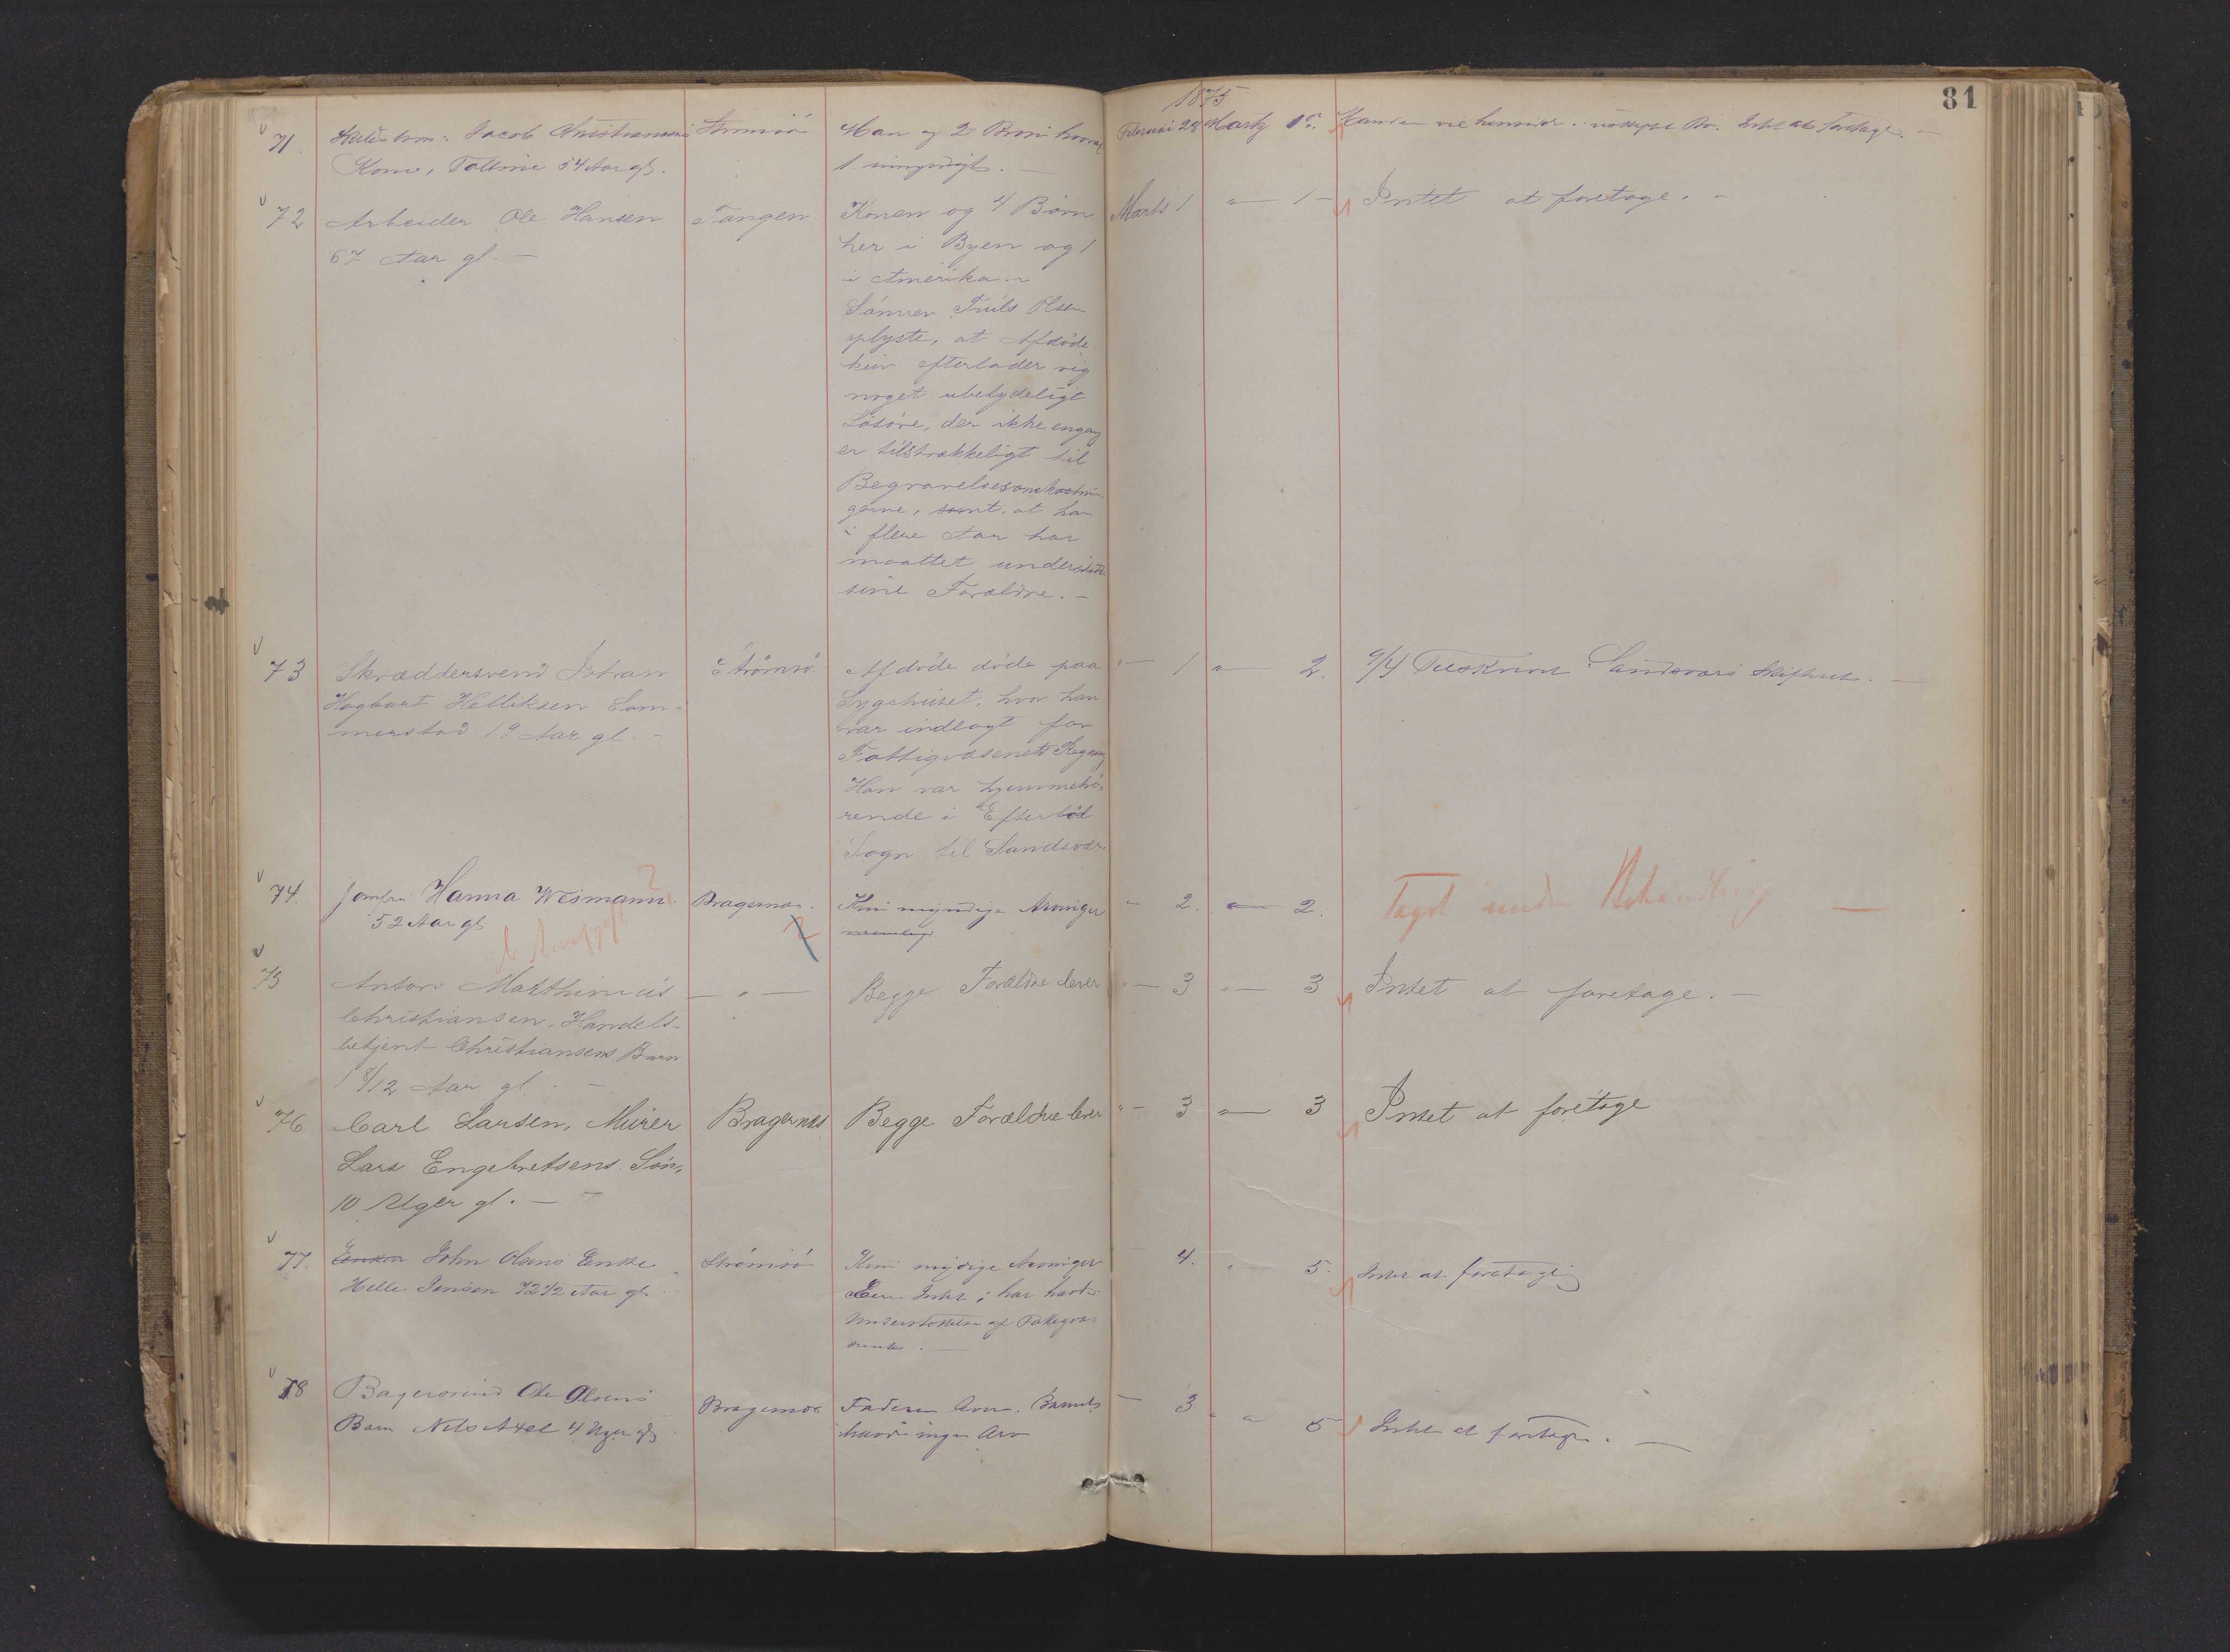 1875
81
71. Jacob Christiansens Strømsö Man og 2 Börn hvoraf Februar 28 Marts 1
Kone, 54 Aar gl. 1 umyndigt. Intet at foretage. —
72 Arbeider Ole Hansen Tangen Konen og 4 Börn Marts 1 " 1 Intet at foretage. —
67 Aar gl. — her i Byen og 1
i Amerika. —
Sönnen Truls Olsen
oplyste, at Afdöde
kun efterlader sig
noget ubetydeligt
Lösöre, der ikke engang
er tilstrækkeligt til
Begravelsesomkostnin-
gerne, samt, at han
i flere Aar har
maattet understötte
sine Forældre. —
73 Skræddersvend Johan Strömsö Afdöde döde paa " — 1 " — 2. 9/4 Tilskrevet Sandsværs Skifteret. —
Hagbart Helliksen Som- Sygehuset, hvor han
merstad 19 Aar gl. — var indlagt for
Fattigvæsenets Regning
Han var hjemmehö-
rende i Efterlöd
Sogn til Sandsvær.
74. Jomfru Hanna Wesmann Bragernæs. Kun myndige Arvinger " 2. " — 2. Taget under Behandling —
52 Aar gl.
75 Anton Marthinius — " — Begge Forældre lever " — 3 " — 3 Intet at foretage. —
Christiansen, Handels-
betjent Christiansens Barn
1 8/12 Aar gl. —
76 Carl Larsen, Murer Bragernæs Begge Forældre lever " — 3 " — 3 Intet at foretage
Lars Engebretsens Sön,
10 Uger gl. —
77. Enken John Olsens Enke Strömsö Kun myndige Arvinger 4. " 5. Intet at foretage
Helle Jensen 72 1/2 Aar gl. Eier Intet; har havt
Understöttelse af Fattigvæ-
senet. —
78 Bagersvend Ole Olsens Bragernæs Faderen lever. Barnet — 3 " " 5 Intet at foretage. —
Barn Nils Axel 4 Uger gl. havde ingen Arv